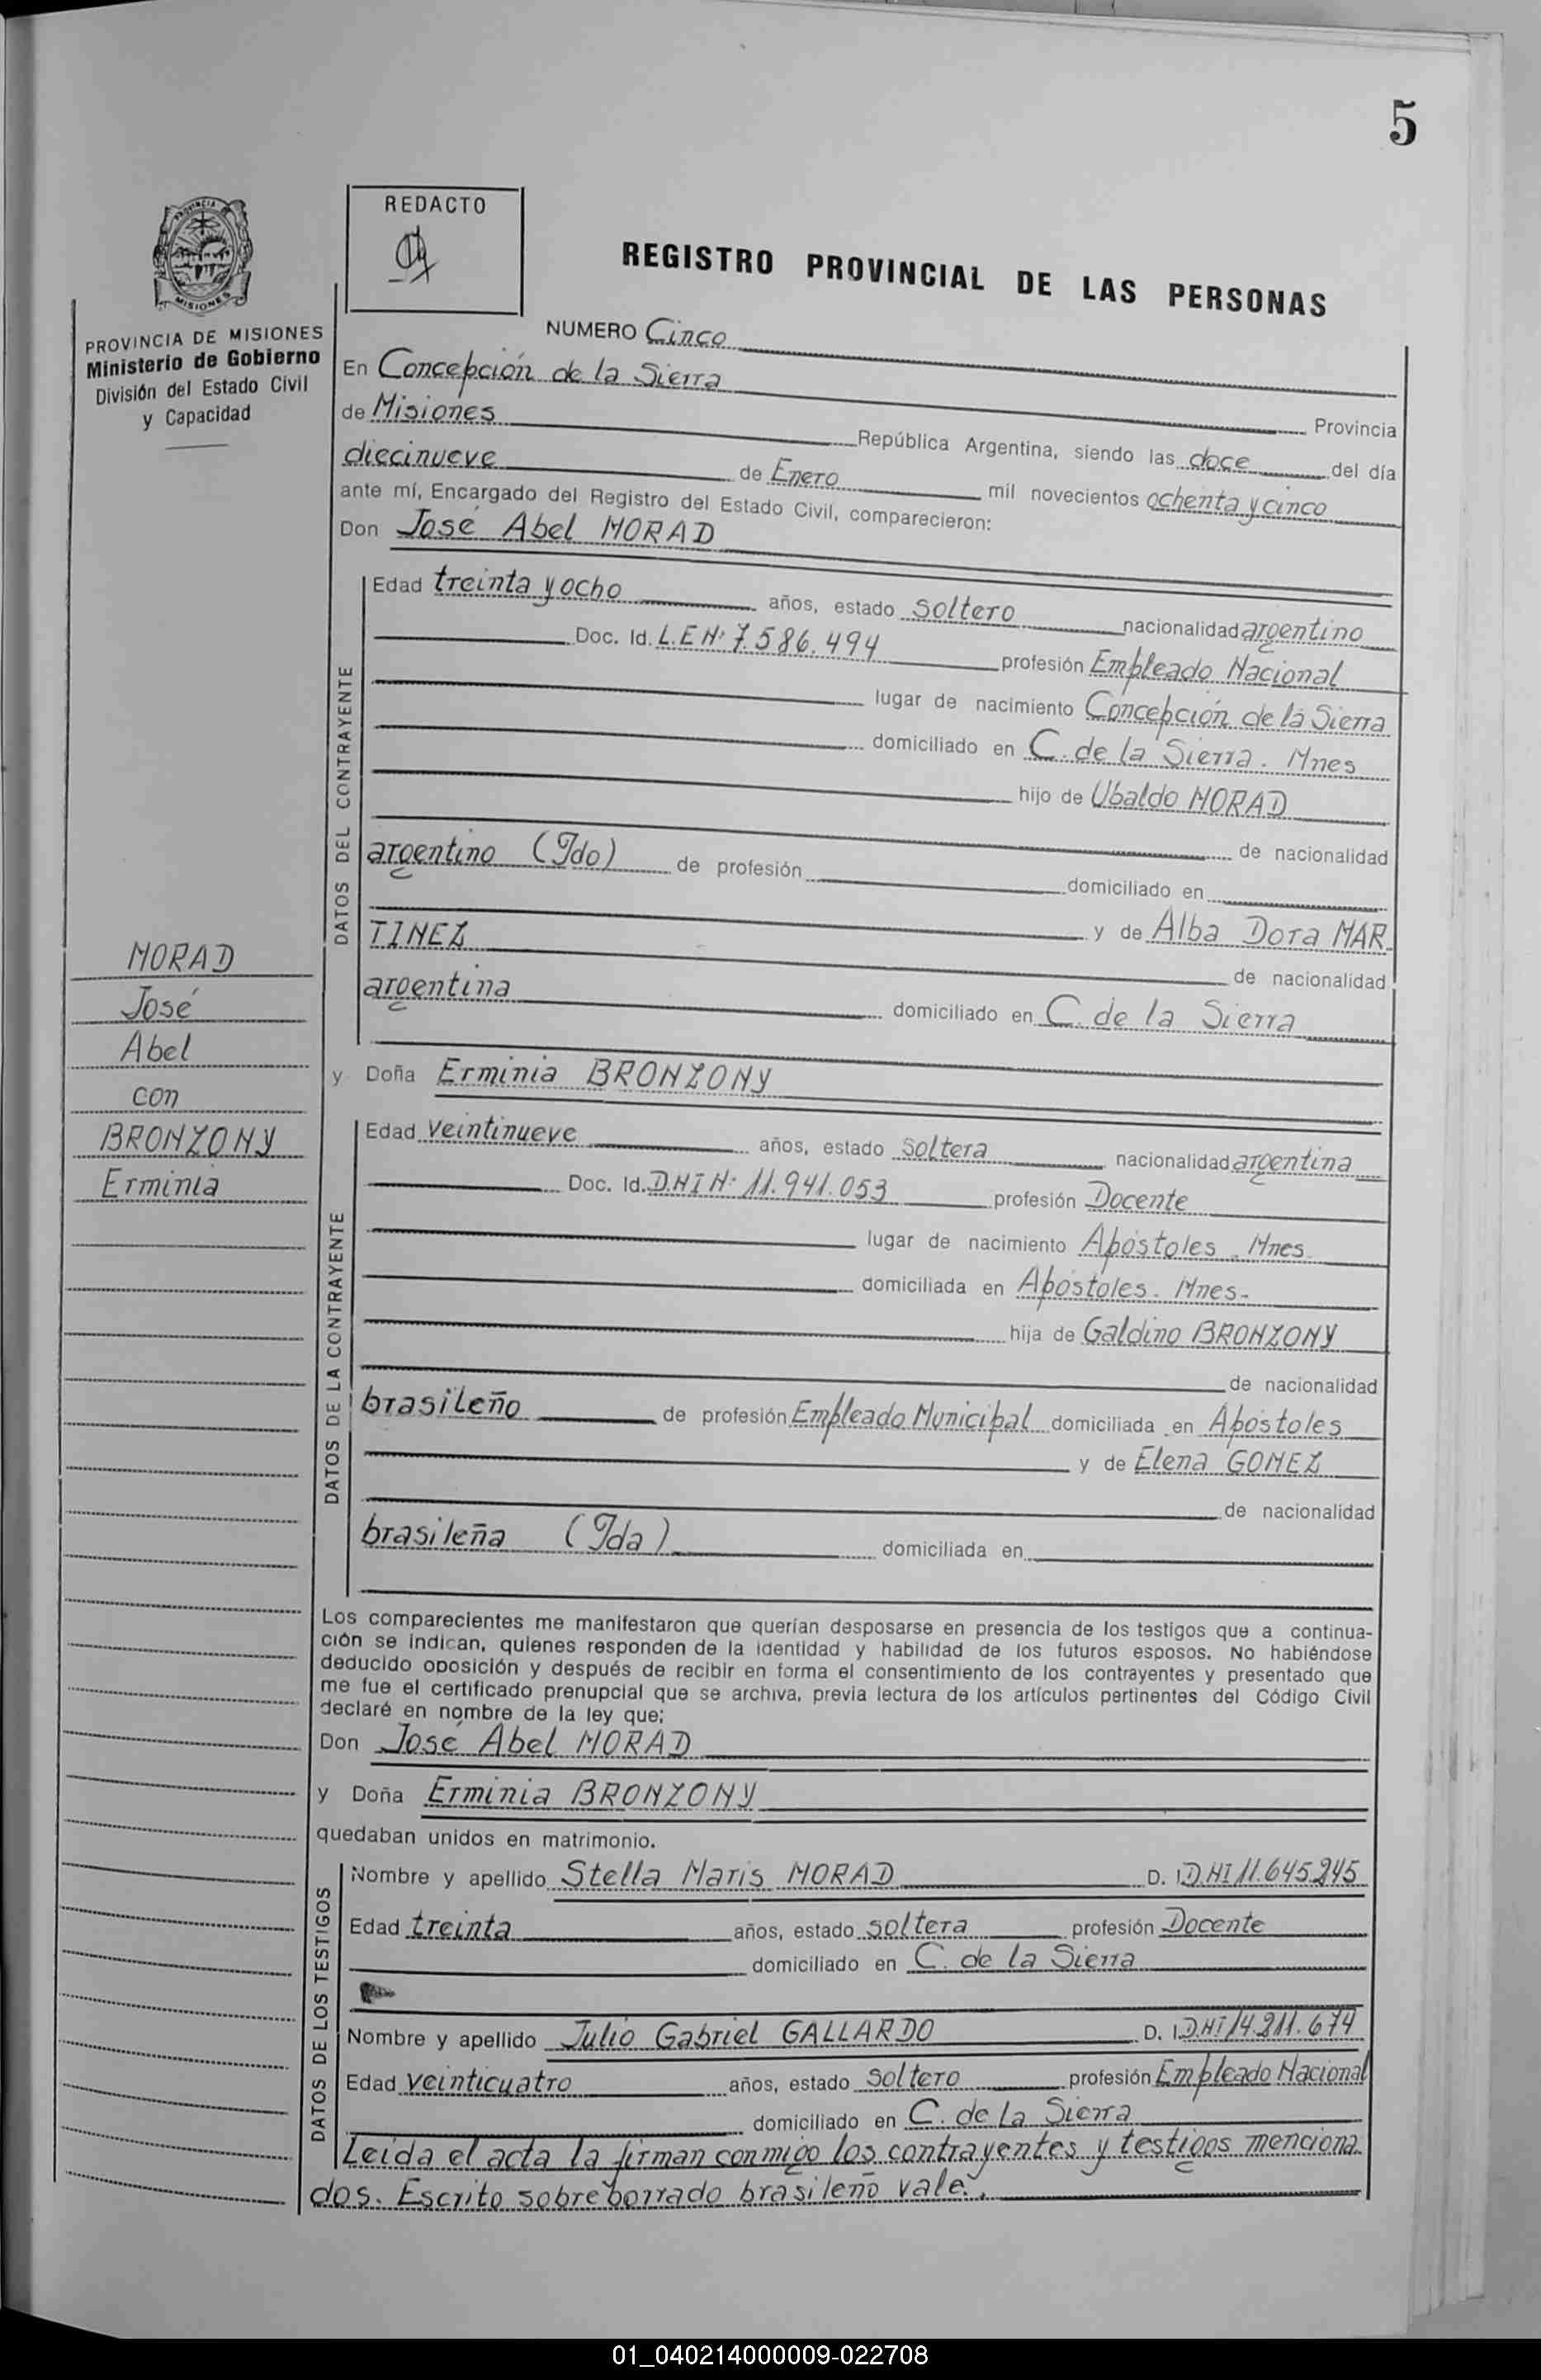 5
REDACTO
REGISTRO PROVINCIAL DE LAS PERSONAS
PROVINCIA
MISIONES
PROVINCIA DE MISIONES
Ministerio de Gobierno
División del Estado Civil
y Capacidad
NUMERO Cinco
En Concepción de la Sierra
Provincia
de Misiones República Argentina, siendo las doce del día
diecinueve de Enero mil novecientos ochenta y cinco
ante mí, Encargado del Registro del Estado Civil, comparecieron:
Don José Abel MORAD
DATOS DEL CONTRAYENTE
Edad treinta y ocho años, estado soltero nacionalidad argentino
Doc. Id. L.E Nº 7.586.494 profesión Empleado Nacional
lugar de nacimiento Concepción de la Sierra
domiciliado en C. de la Sierra. Mnes
hijo de Ubaldo MORAD
de nacionalidad
argentino (Fdo) de profesión domiciliado en
y de Alba Dora MAR-
TINEZ de nacionalidad
argentina domiciliado en C. de la Sierra
MORAD
José
Abel
con
BRONZONY
Erminia
y Doña Erminia BRONZONY
DATOS DE LA CONTRAYENTE
Edad veintinueve años, estado soltera nacionalidad argentina
Doc. Id. D.N.I Nº 11.941.053 profesión Docente
lugar de nacimiento Apóstoles. Mnes
domiciliada en Apóstoles. Mnes-
hija de Galdino BRONZONY
de nacionalidad
brasileño de profesión Empleado Municipal domiciliada en Apóstoles
y de Elena GOMEZ
de nacionalidad
brasileña (Fda) domiciliada en
Los comparecientes me manifestaron que querían desposarse en presencia de los testigos que a continua-
ción se indican, quienes responden de la identidad y habilidad de los futuros esposos. No habiéndose
deducido oposición y después de recibir en forma el consentimiento de los contrayentes y presentado que
me fue el certificado prenupcial que se archiva, previa lectura de los artículos pertinentes del Código Civil
declaré en nombre de la ley que:
Don José Abel MORAD
y Doña Erminia BRONZONY
quedaban unidos en matrimonio.
DATOS DE LOS TESTIGOS
Nombre y apellido Stella Maris MORAD D. I. D.NI 11.645.245
Edad treinta años, estado soltera profesión Docente
domiciliado en C. de la Sierra
Nombre y apellido Julio Gabriel GALLARDO D. I. D.NI 14.211.674
Edad veinticuatro años, estado soltero profesión Empleado Nacional
domiciliado en C. de la Sierra
Leída el acta la firman conmigo los contrayentes y testigos menciona-
dos. Escrito sobreborrado brasileño vale.
01_040214000009-022708